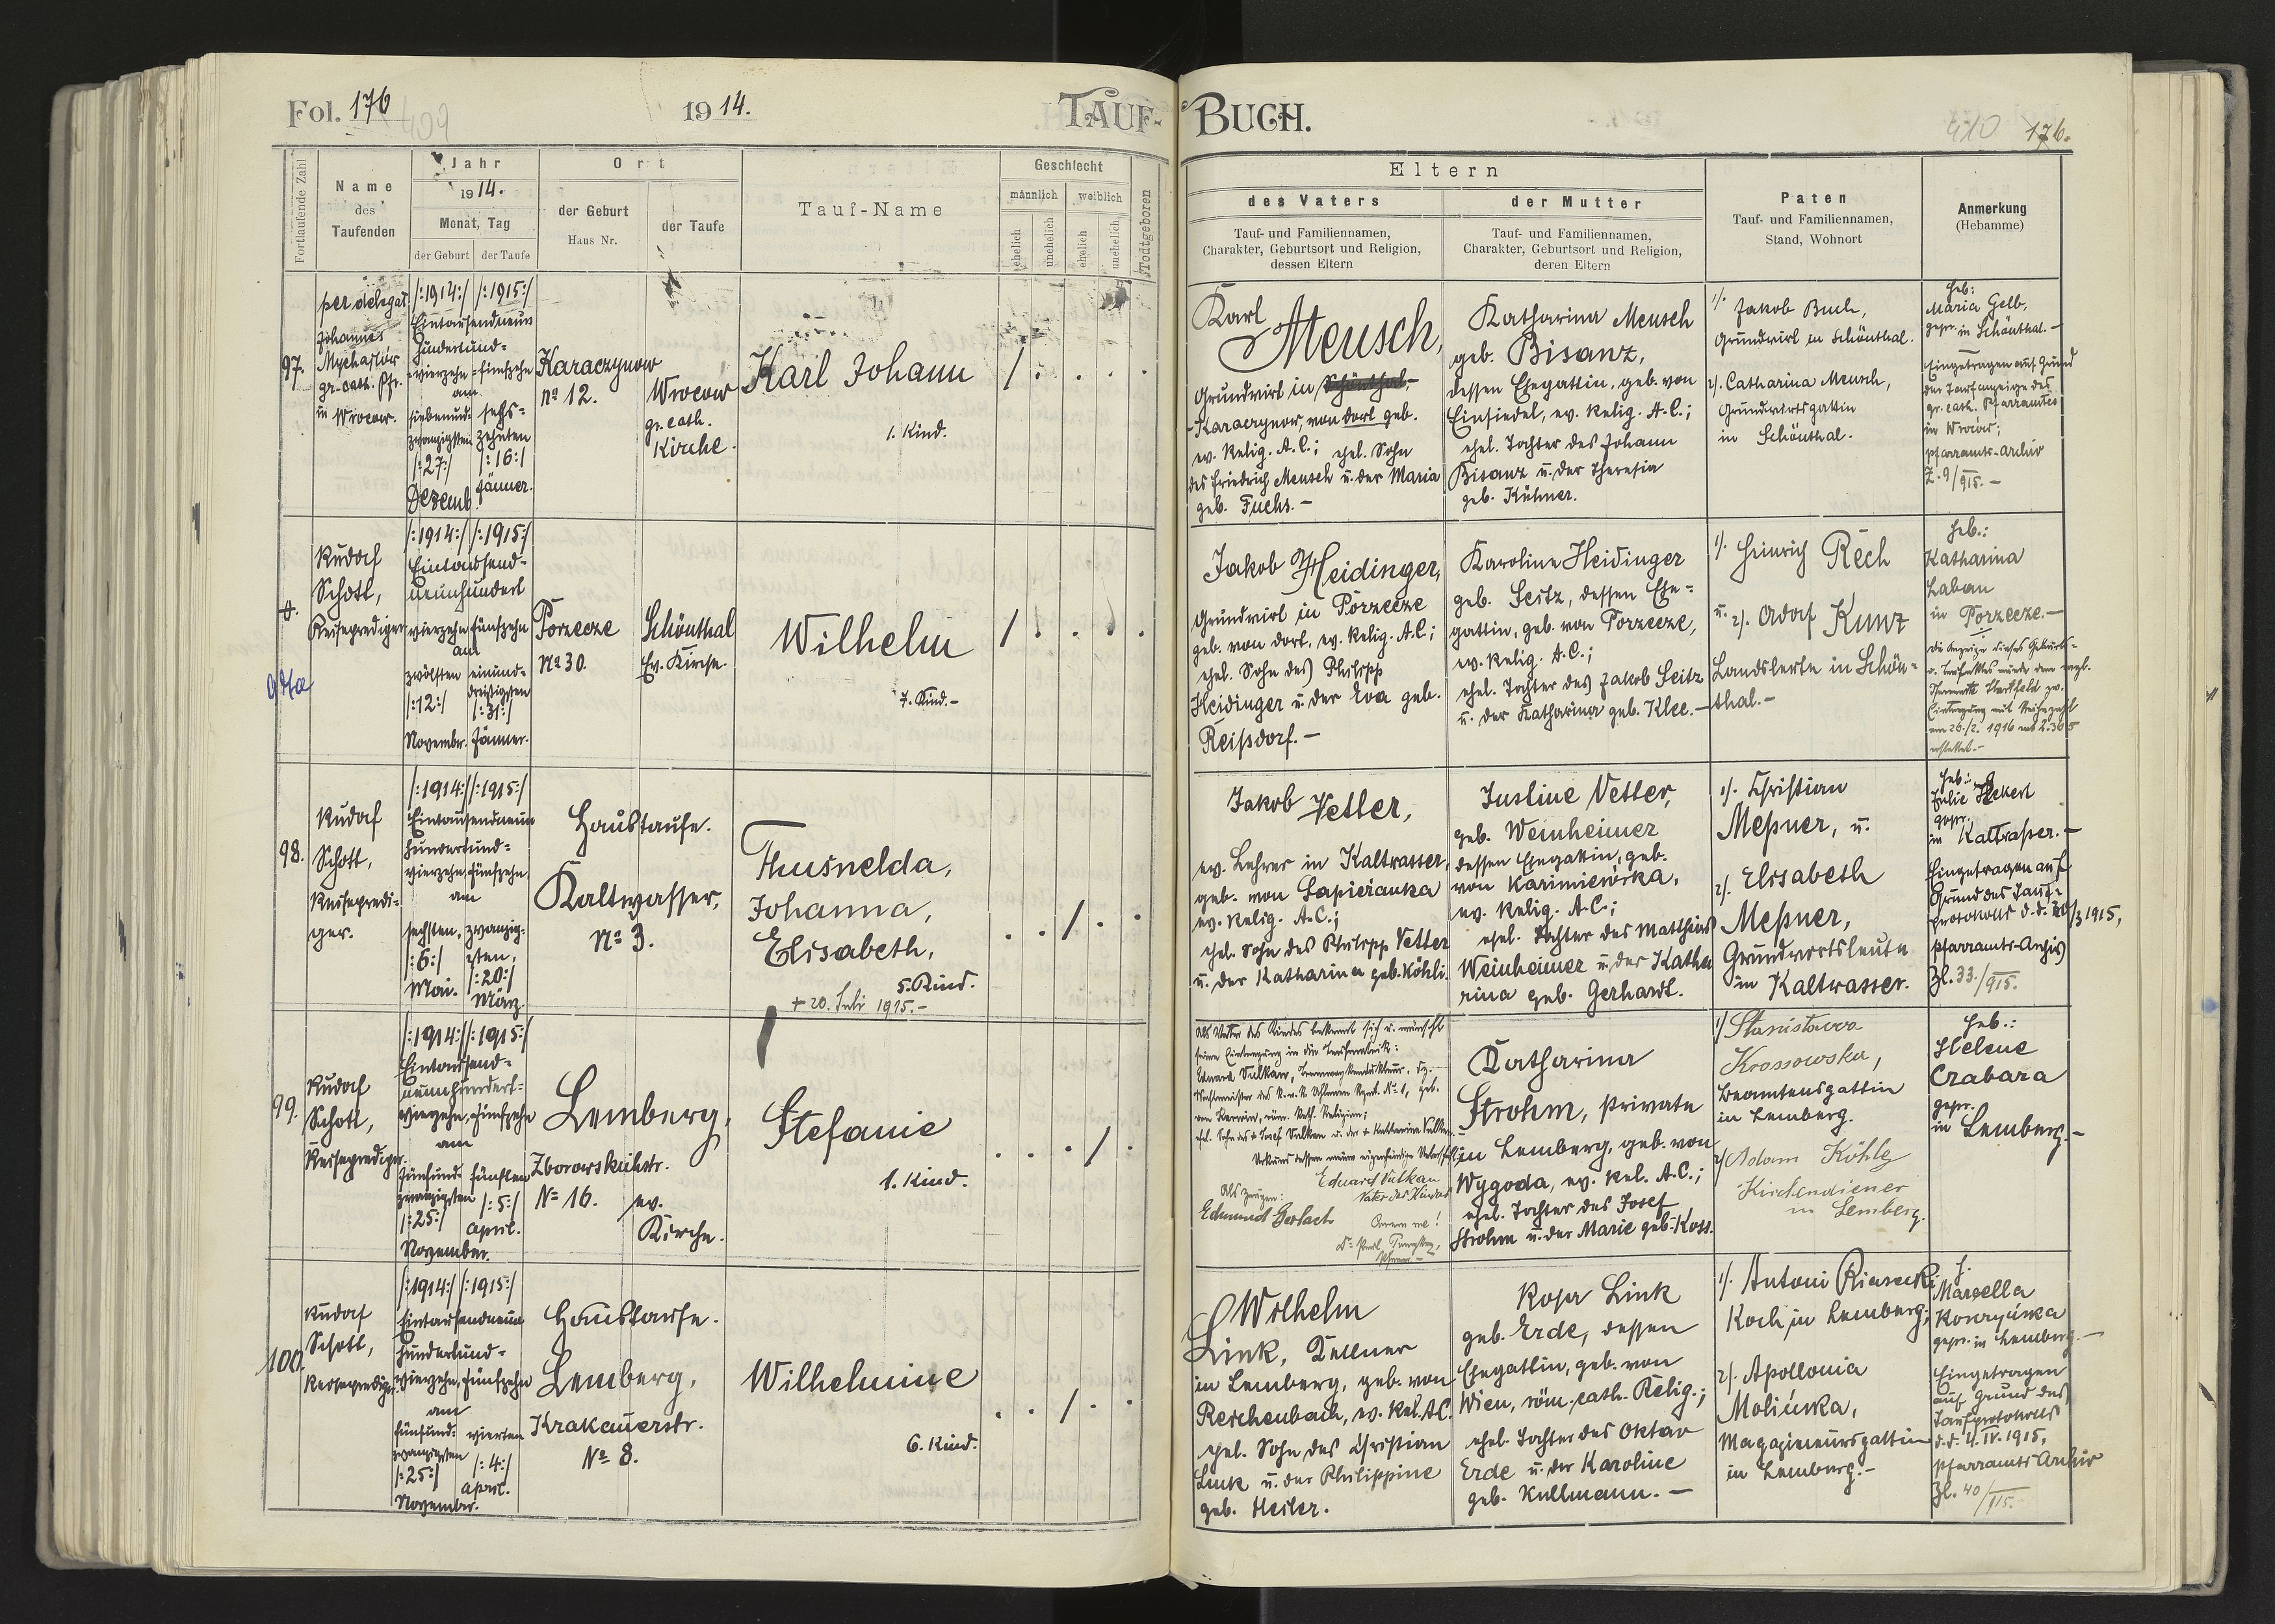 Fol. 176
409
1914.
TAUF-
BUCH.
410 176.
Fortlaufende Zahl
Name
des
Taufenden
Jahr
1914.
Monat, Tag
der Geburt
der Taufe
Ort
der Geburt
Haus Nr.
der Taufe
Tauf-Name
Geschlecht
männlich
weiblich
ehelich
unehelich
ehelich
unehelich
Todtgeboren
Eltern
des Vaters
Tauf- und Familiennamen,
Charakter, Geburtsort und Religion,
dessen Eltern
der Mutter
Tauf- und Familiennamen,
Charakter, Geburtsort und Religion,
deren Eltern
Paten
Tauf- und Familiennamen,
Stand, Wohnort
Anmerkung
(Hebamme)
97.
per delegat.
Johannes
gr. cath. Pfr.
in Wrocow.
/:1914:/ /:1915:/
Eintausendneun
hundertund=
vierzehn = fünfzehn
am
siebenund= sechs=
zwanzigsten zehnten
/:27:/ /:16:/
Dezemb. Jänner.
Karaczynow
No 12.
Wrocow
gr. cath.
Kirche.
Karl Johann
1. Kind.
Karl
Meusch,
Grundwirt in Schönthal,
Karaczynow, von dort geb.
ev. Relig. A.C.; ehel. Sohn
des Friedrich Meusch u. der Maria
geb. Fuchs.-
Katharina Meusch
geb. Bisanz,
dessen Ehegattin, geb. von
Einsiedel, ev. Relig. A.C.;
ehel. Tochter des Johann
Bisanz u. der Theresia
geb. Kühner.
1/. Jakob Buch,
Grundwirt in Schönthal.
2/. Catharina Meusch,
Grundwirtsgattin
in Schönthal.
Heb:
Maria Gelb,
gepr. in Schönthal.-
Eingetragen auf Grund
der Taufanzeige des
gr. cath. Pfarramtes
in Wrocow;
Pfarramts-Archiv
Z. 9/915.-
Rudolf
Schott,
Reiseprediger
/:1914:/ /:1915:/
Eintausend-
neunhundert
vierzehn fünfzehn
am
zwölften einund=
dreißigsten
/:12:/ /:31:/
Novembr. Jänner.
Porzecze
No 30.
Schönthal
Ev. Kirche.
Wilhelm
7. Kind.-
Jakob Heidinger,
Grundwirt in Porzecze
geb. von dort, ev. Relig. A.C.;
ehel. Sohn des Philipp
Heidinger u. der Eva geb.
Reißdorf.-
Karoline Heidinger
geb. Seitz, dessen Ehe=
gattin, geb. von Porzecze,
ev. Relig. A.C.;
ehel. Tochter des Jakob Seitz
u. der Katharina geb. Klee.-
1/. Heinrich Rech
u. 2/. Adolf Kunz
Landsleute in Schön=
thal.-
Heb.:
Katharina
Laban
in Porzecze.-
98.
Rudolf
Schott,
Reisepredi-
ger.
/:1914:/ /:1915:/
Eintausendneun
hundertund=
vierzehn, fünfzehn
am
sechsten, zwanzig-
sten,
/:6:/ /:20:/
Mai. März
Haustaufe.
Kaltwasser,
No 3.
Thusnelda,
Johanna,
Elisabeth,
5. Kind.
+ 20. Juli 1915.-
Jakob Vetter,
ev. Lehrer in Kaltwasser,
geb. von Sapieżanka
ev. Relig. A.C.;
ehel. Sohn des Philipp Vetter
u. der Katharina geb. Köhli.
Justine Vetter,
geb. Weinheimer
dessen Ehegattin, geb.
von Kazimierówka,
ev. Relig. A.C.;
ehel. Tochter des Matthias
Weinheimer u. der Katha
rina geb. Gerhardt.
1/. Christian
Meßner, u.
2/. Elisabeth
Meßner,
Grundwirtsleute
in Kaltwasser.
Heb.:
gepr.
in Kaltwasser.-
Eingetragen auf
Grund des Tauf-
protokolls d.d. 20/3 1915,
Pfarramts-Archiv
Zl. 33/915.
99.
Rudolf
Schott,
Reiseprediger.
/:1914:/ /:1915:/
Eintausend=
neunhundert=
vierzehn, fünfzehn
am
fünfund= fünften
zwanzigsten /:5:/
/:25:/ April.
November.
Lemberg,
Zborowskichstr.
No 16.
ev.
Kirche.
Stefanie
1. Kind.
Als Vater des Kindes bekennt sich u. wünscht
seine Eintragung in die Taufmatrik:
Eduard Vulkan
Vater des Kindes
Als Zeugen:
Edmund Gerlach
Coram me!
Katharina
Strohm, Private
in Lemberg, geb. von
Wygoda, ev. Rel. A.C.;
ehel. Tochter des Josef
Strohm u. der Marie geb. Koss.
1/ Stanisława
Krossowska,
Beamtensgattin
in Lemberg.
2/ Adam Köhle
Kirchendiener
in Lemberg.
Heb.:
Helene
Czabara
gepr.
in Lemberg.-
100.
Rudolf
Schott,
Reiseprediger
/:1914:/ /:1915:/
Eintausendneun
hundertund=
vierzehn, fünfzehn
am
fünfund= vierten
zwanzigsten
/:25:/ /:4:/
April.
November.
Haustaufe.
Lemberg,
Krakauerstr.
No 8.
Wilhelmine
6. Kind.
Wilhelm
Link, Kellner
in Lemberg, geb. von
Reichenbach, ev. Rel. A.C.
ehel. Sohn des Christian
Link u. der Philippine
geb. Heiler.
Rosa Link
geb. Erde, dessen
Ehegattin, geb. von
Wien, röm. cath. Relig.;
ehel. Tochter des Oktav
Erde u. der Karoline
geb. Kullmann.-
1/. Antoni
Koch in Lemberg;
2/. Apollonia
Molińska,
Magazineursgattin
in Lemberg.-
H.
Marcella
gepr. in Lemberg.-
Eingetragen
auf Grund des
Taufprotokolls
d.d. 4. IV. 1915,
Pfarramts Archiv
Zl. 40/915.